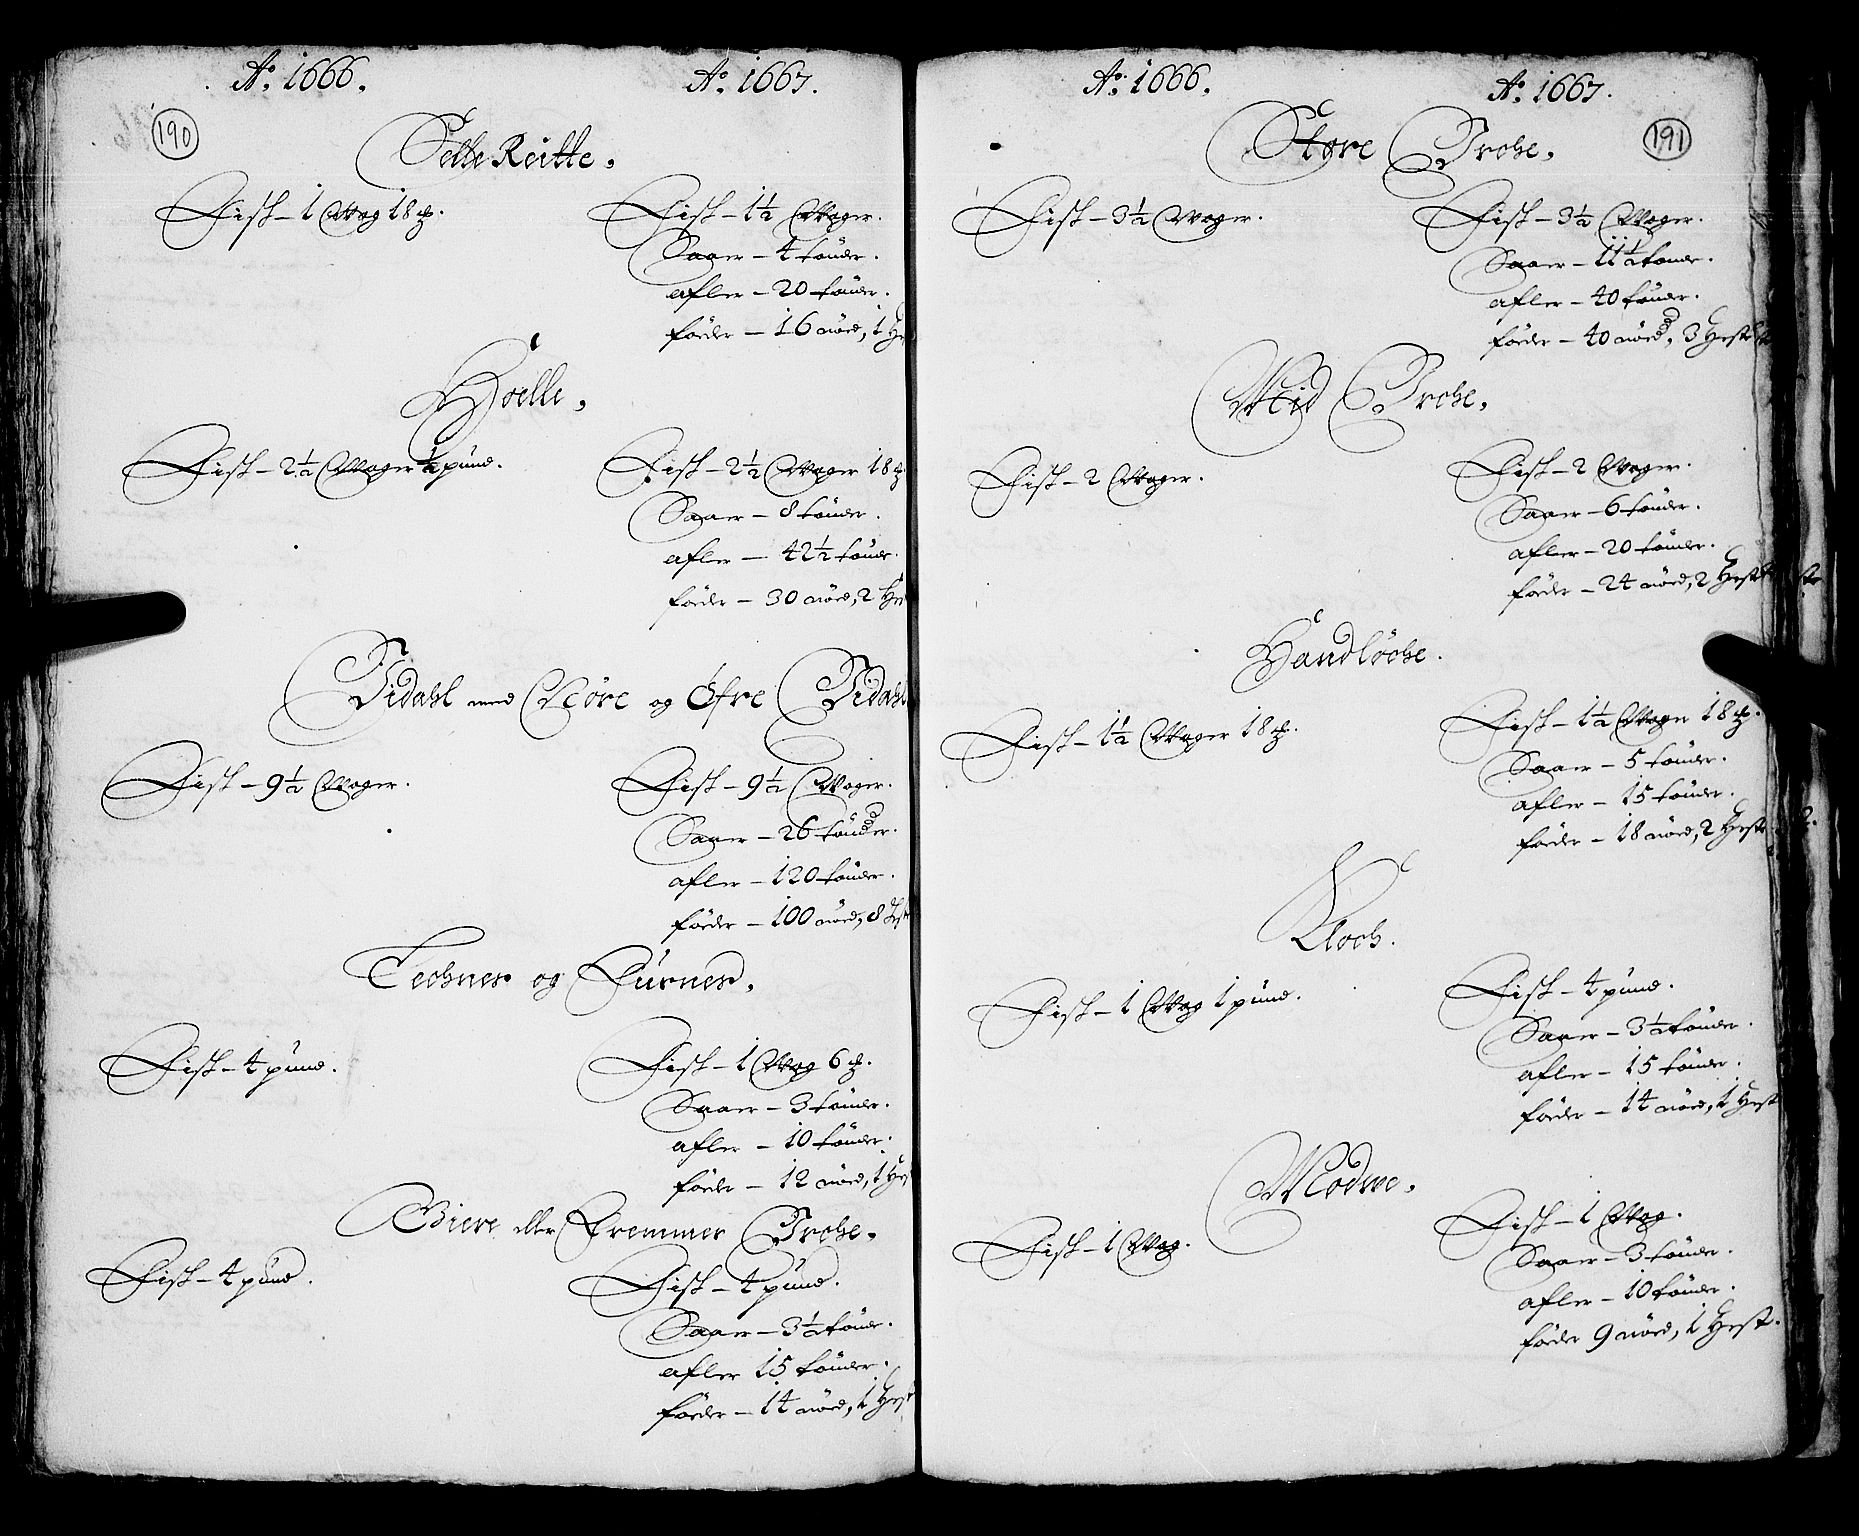 Aº. 1666. Aº. 1667.
190
Selle Reitte.
Fisk – 1 Wog 18 ℔. Fisk – 1½ Woger.
Saaer – 4 tønder.
afler – 20 tønder.
føder – 16 nød, 1 He
Hoelle.
Fisk – 2½ Woger ½ pund. Fisk – 2½ Woger 18 ℔
Saaer – 8 tønder.
afler – 42½ tønder.
føder – 30 nød, 2 Hes
Tidahl med Nore og Øfre Tidahl
Fisk – 9½ Woger. Fisk – 9½ Woger.
Saaer – 26 tønder.
afler – 120 tønder.
føder – 100 nød, 8 Hest
Techner og Furner.
Fisk – 4 pund. Fisk – 1 Wog 6 ℔.
Saaer – 3 tønder.
afler – 10 tønder.
føder – 12 nød, 1 Hes
Giere eller Fremmer Broche.
Fisk – 4 pund. Fisk – 4 pund.
Saaer – 3½ tønder.
afler 15 tønder.
føder – 14 nød, 1 Hest
Aº. 1666. Aº. 1667.
191
Store Broche.
Fisk – 3½ Woger. Fisk – 3½ Woger.
Saaer – 11½ tønder.
afler – 40 tønder.
føder – 40 nød, 3 Heste
Mid Broche.
Fisk – 2 Woger. Fisk – 2 Woger.
Saaer – 6 tønder.
afler – 20 tønder.
føder – 24 nød, 2 Heste
Handløche.
Fisk – 1½ Woger 18 ℔. Fisk – 1½ Woger 18 ℔.
Saaer – 5 tønder.
afler – 15 tønder.
føder – 18 nød, 2 Heste
Kloch.
Fisk – 1 Wog 1 pund. Fisk – 4 pund.
Saaer – 3½ tønder.
afler – 15 tønder.
føder – 14 nød, 1 Hest
Modwe.
Fisk – 1 Wog. Fisk – 1 Wog.
Saaer – 3 tønder.
afler – 10 tønder.
føder 9 nød, 1 Hest.